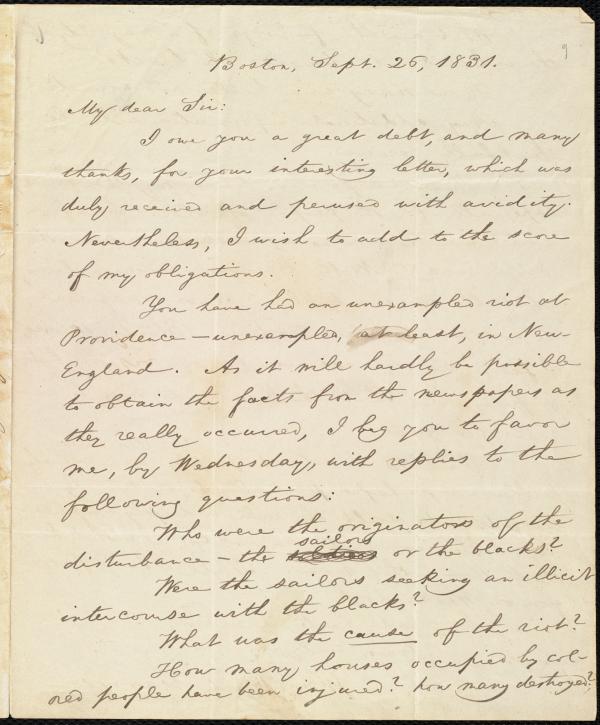 9
Boston, Sept. 26, 1831.
My dear Sir:
I owe you a great debt, and many
thanks, for your interesting letter, which was
duly received and perused with avidity.
Nevertheless, I wish to add to the score
of my obligations.
You have had an unexampled riot at
Providence — unexampled, at least, in New-
England. As it will hardly be possible
to obtain the facts from the newspapers as
they really occurred, I beg you to favor
me, by Wednesday, with replies to the
following questions:
Who were the originators of the
sailors
disturbance — the or the blacks?
Were the sailors seeking an illicit
intercourse with the blacks?
What was the cause of the riot?
How many houses occupied by col-
ored people have been injured? how many destroyed?